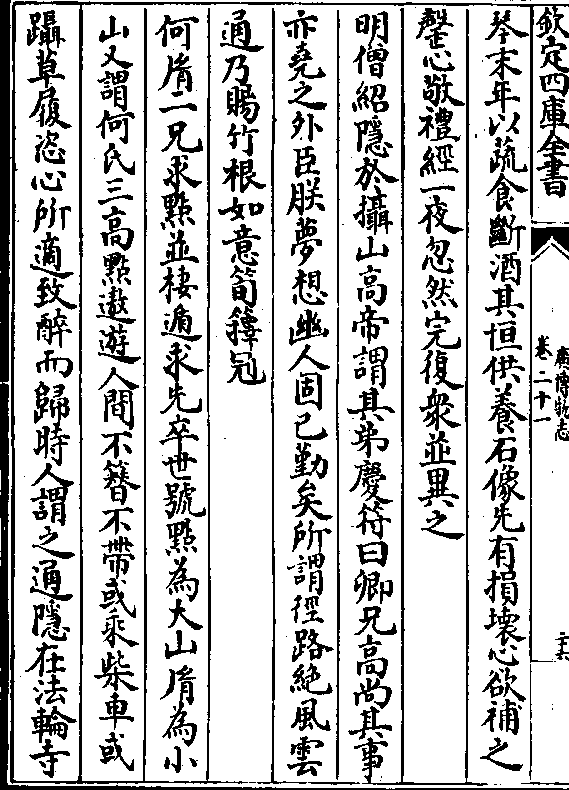 欽定四庫全書
廣博物志
卷二十一
二十六
琴末年以蔬食斷酒其恒供養石像先有損壞心欲補之
罄心敬禮經一夜忽然完復衆並異之
明僧紹隱於攝山高帝謂其弟慶符曰卿兄高尚其事
亦堯之外臣朕夢想幽人固已勤矣所謂徑路絶風雲
通乃賜竹根如意筍籜冠
何㣧一兄求點並棲遁求先卒世號點為大山㣧為小
山又謂何氏三高點遨遊人間不簪不帶或乘柴車或
躡草履恣心所適致醉而歸時人謂之通隱在法輪寺